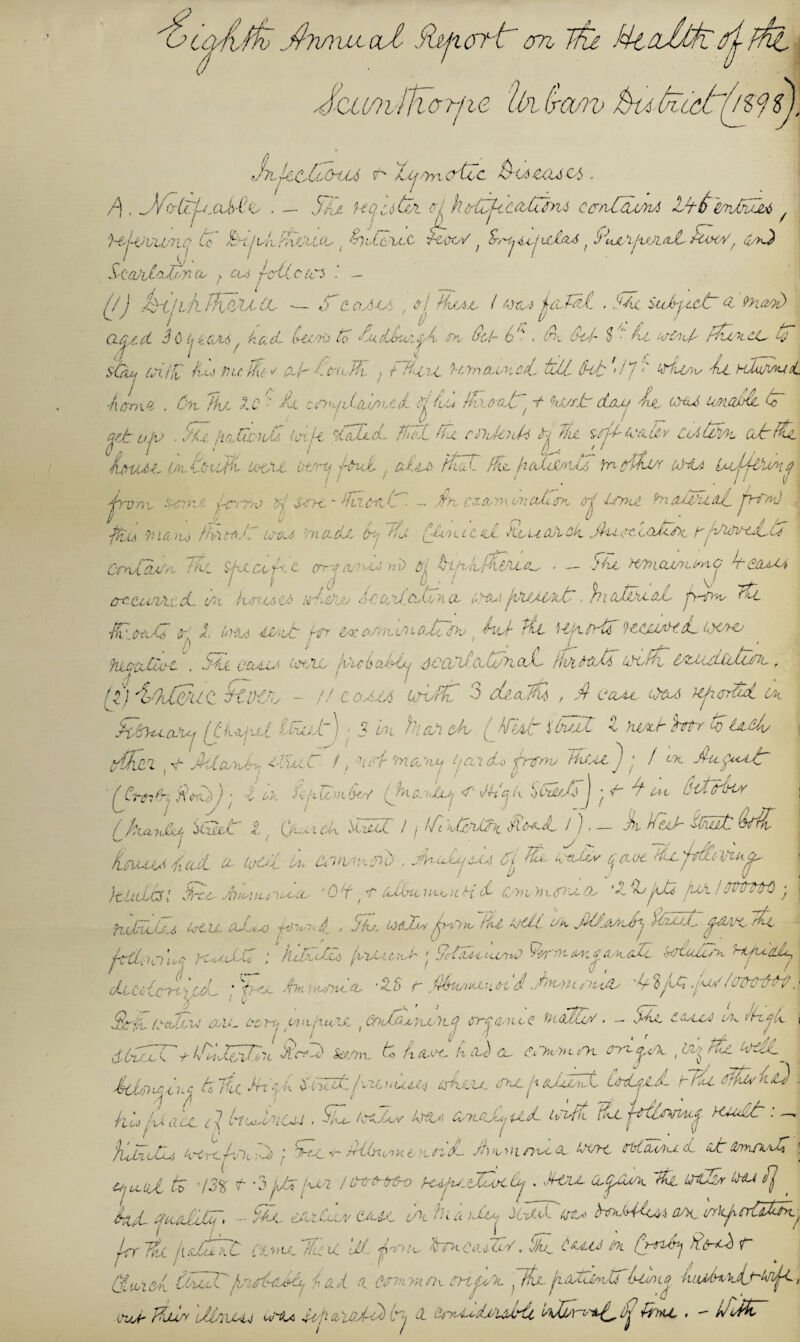 Eighth Annual Report on the Health of the
Scunthorpe Urban District (1898).
Infectious & Zymotic Diseases.
A. Notifiable. — The register of notifications contains 246 entries,
referring to Diphtheria, Enteric Fever, Erysipelas, Puerperal Fever, and
Scarlatina, as follows: —
(1) Diphtheria — 5 cases, of these 1 was fatal. The subject a man
aged 30 years, had been to Sudburgh on Oct 6th. On Oct 8th he went thence to
stay with his mother at Louth, & there remained till Oct 17th when he returned
home. On the 20th he complained of his throat, & next day he was unable to
get up. The patient's wife stated that the contents of the soft-water cistern at the
house in Louth were very foul, also that the patient's mother was suffering
from some form of sore-throat. — An examination of some material from
this man's throat was made by the Clinical Research Association & proved to
contain the specific organism of Diphtheria. — The remaining 4 cases
occurred in houses where Scarlatina was present. Material from the
throats of 2 was sent for examination, but the reports received were
negative. The cases were probably scarlatinal throats with exudation.
(2) Enteric Fever — 11 cases with 3 deaths, A case was reported in
February (Chapel Street); 3 in March (West Street 2 next door to each
other, & Manley Street 1, not many yards from these); 1 in August
(Crosby Road); 2 in September (Manley & High Streets); & 4 in October
(Manley Street 2, Church Street 1, Winterton Road 1). — In West Street both
houses had a well in common. Analysis of the water gave the following
results: Free Ammonia ·04, & albumenoid ammonia ·2 pts per 1000000;
nitrites were also found. The water from the well in Manley Street gave the
following results: Nitrites present; Potassium Permanganate solution rapidly
decolorized; free Ammonia ·28 & Albumenoid Ammonia ·48 pts. per 1000000.
Both waters are very impure, containing organic matter. — The cases in High
Street & Winterton Road seem to have had a common origin, viz the well
belonging to the High Street premises where one patient lodged & the other had
his place of business. The water was analysed with the following result: —
Nitrites were found; Free & Albumenoid Ammonia were obtained at amounts
equal to ·138 & ·3 pts per 1000000 respectively. Here again the water was of
bad quality. — The earlier case in Manley Street was doubtless an importation,
for the patient came there ill from Doncaster. The cases in Crosby Road &
Church Street probably had a common origin, the patients being husband & wife,
but their illness was separated by a considerable interval of time. — With